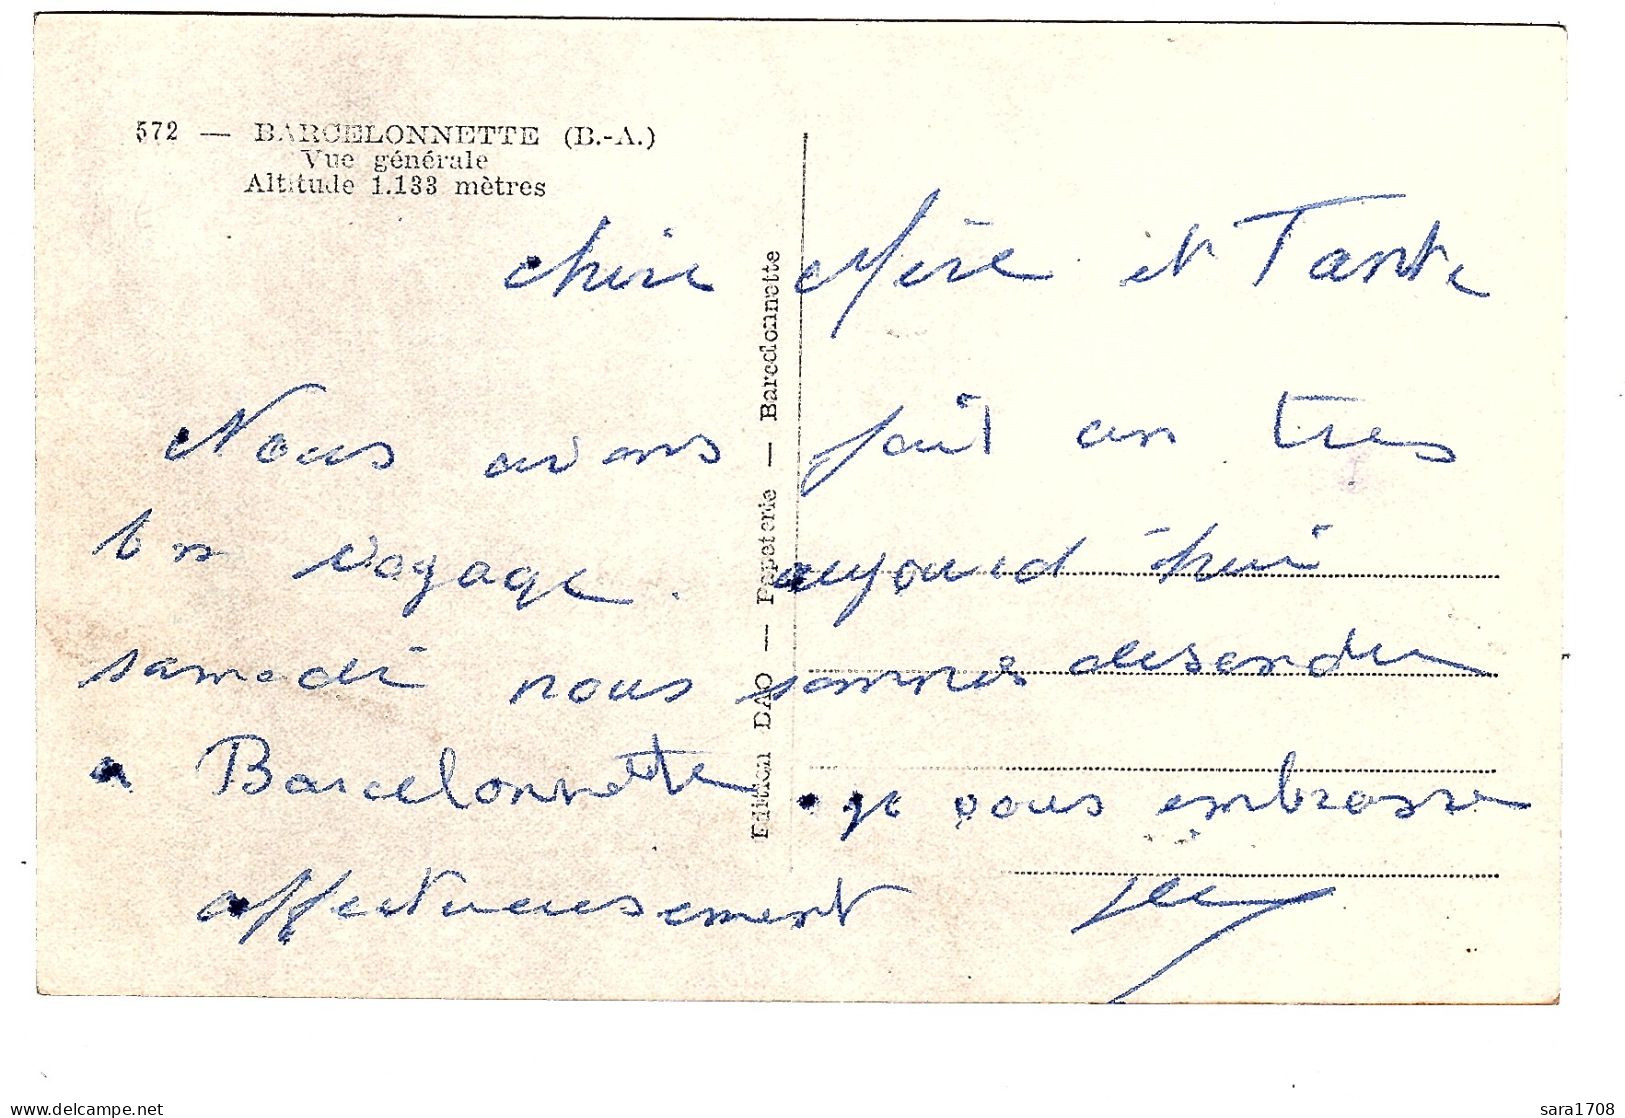 572 — BARCELONNETTE (B.-A.)
Vue générale
Altitude 1.133 mètres
chère Mère et Tante
Nous avons fait un tres
bon voyage. aujourd'hui
samedi nous sommes desendu
a Barcelonnette. je vous embrasse
affectueusement
Edition DAO — Papeterie — Barcelonnette
www.delcampe.net
sara1708